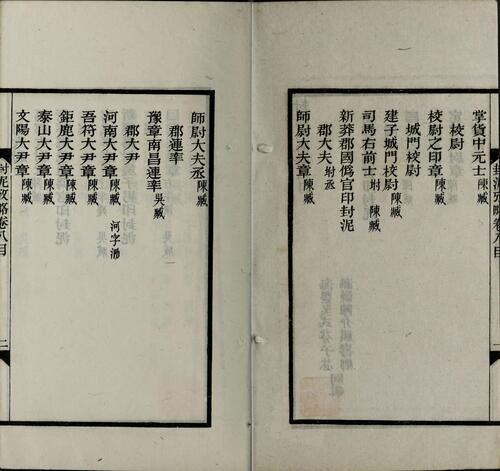 掌貨中元士 陳臧
校尉
校尉之印章 陳臧
城門校尉
建子城門校尉 陳臧
司馬右前士 坿 陳臧
新莽郡國僞官印封泥
郡大夫 坿丞
師尉大夫章 陳臧
師尉大夫丞 陳臧
郡連率
豫章南昌連率 吳臧
郡大尹
河南大尹章 陳臧 河字泐
吾符大尹章 陳臧
鉅鹿大尹章 陳臧
泰山大尹章 陳臧
文陽大尹章 陳臧
封泥攷略卷八目 二